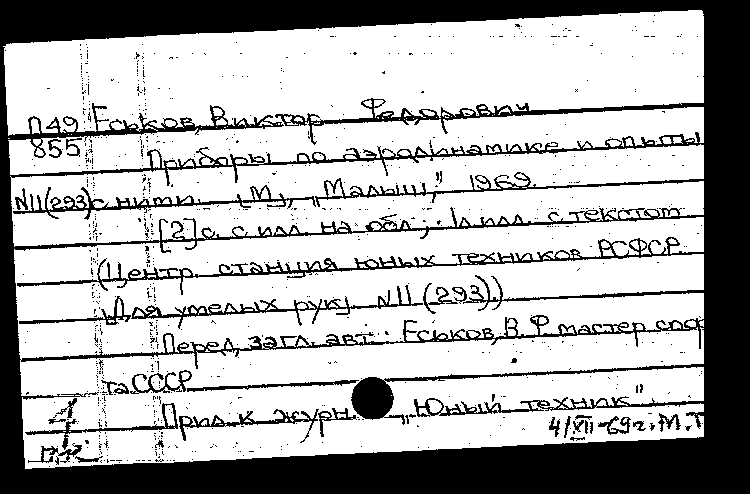 П49 Еськов, Виктор Федорович
855 Приборы по аэродинамике и опыты
N11(293) с ними. [М], „Малыш," 1969.
[2] с. с илл. на обл.; 1 л. илл. с текстом
(Центр. станция юных техников РСФСР.
Для умелых рук). N11 (293).)
Перед. загл. авт.: Еськов, В. Ф. мастер спор
та СССР
4 Прил. к журн. „Юный техник".
4/XII-69 г. М.Т